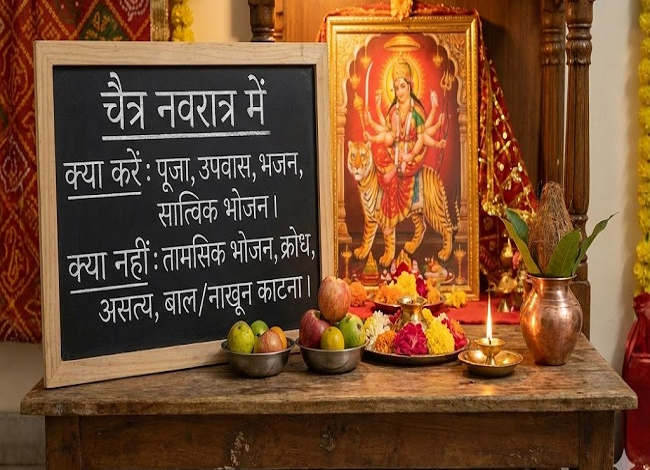 चैत्र नवरात्र में
क्या करें : पूजा, उपवास, भजन,
सात्विक भोजन।
क्या नहीं : तामसिक भोजन, क्रोध,
असत्य, बाल/नाखून काटना।